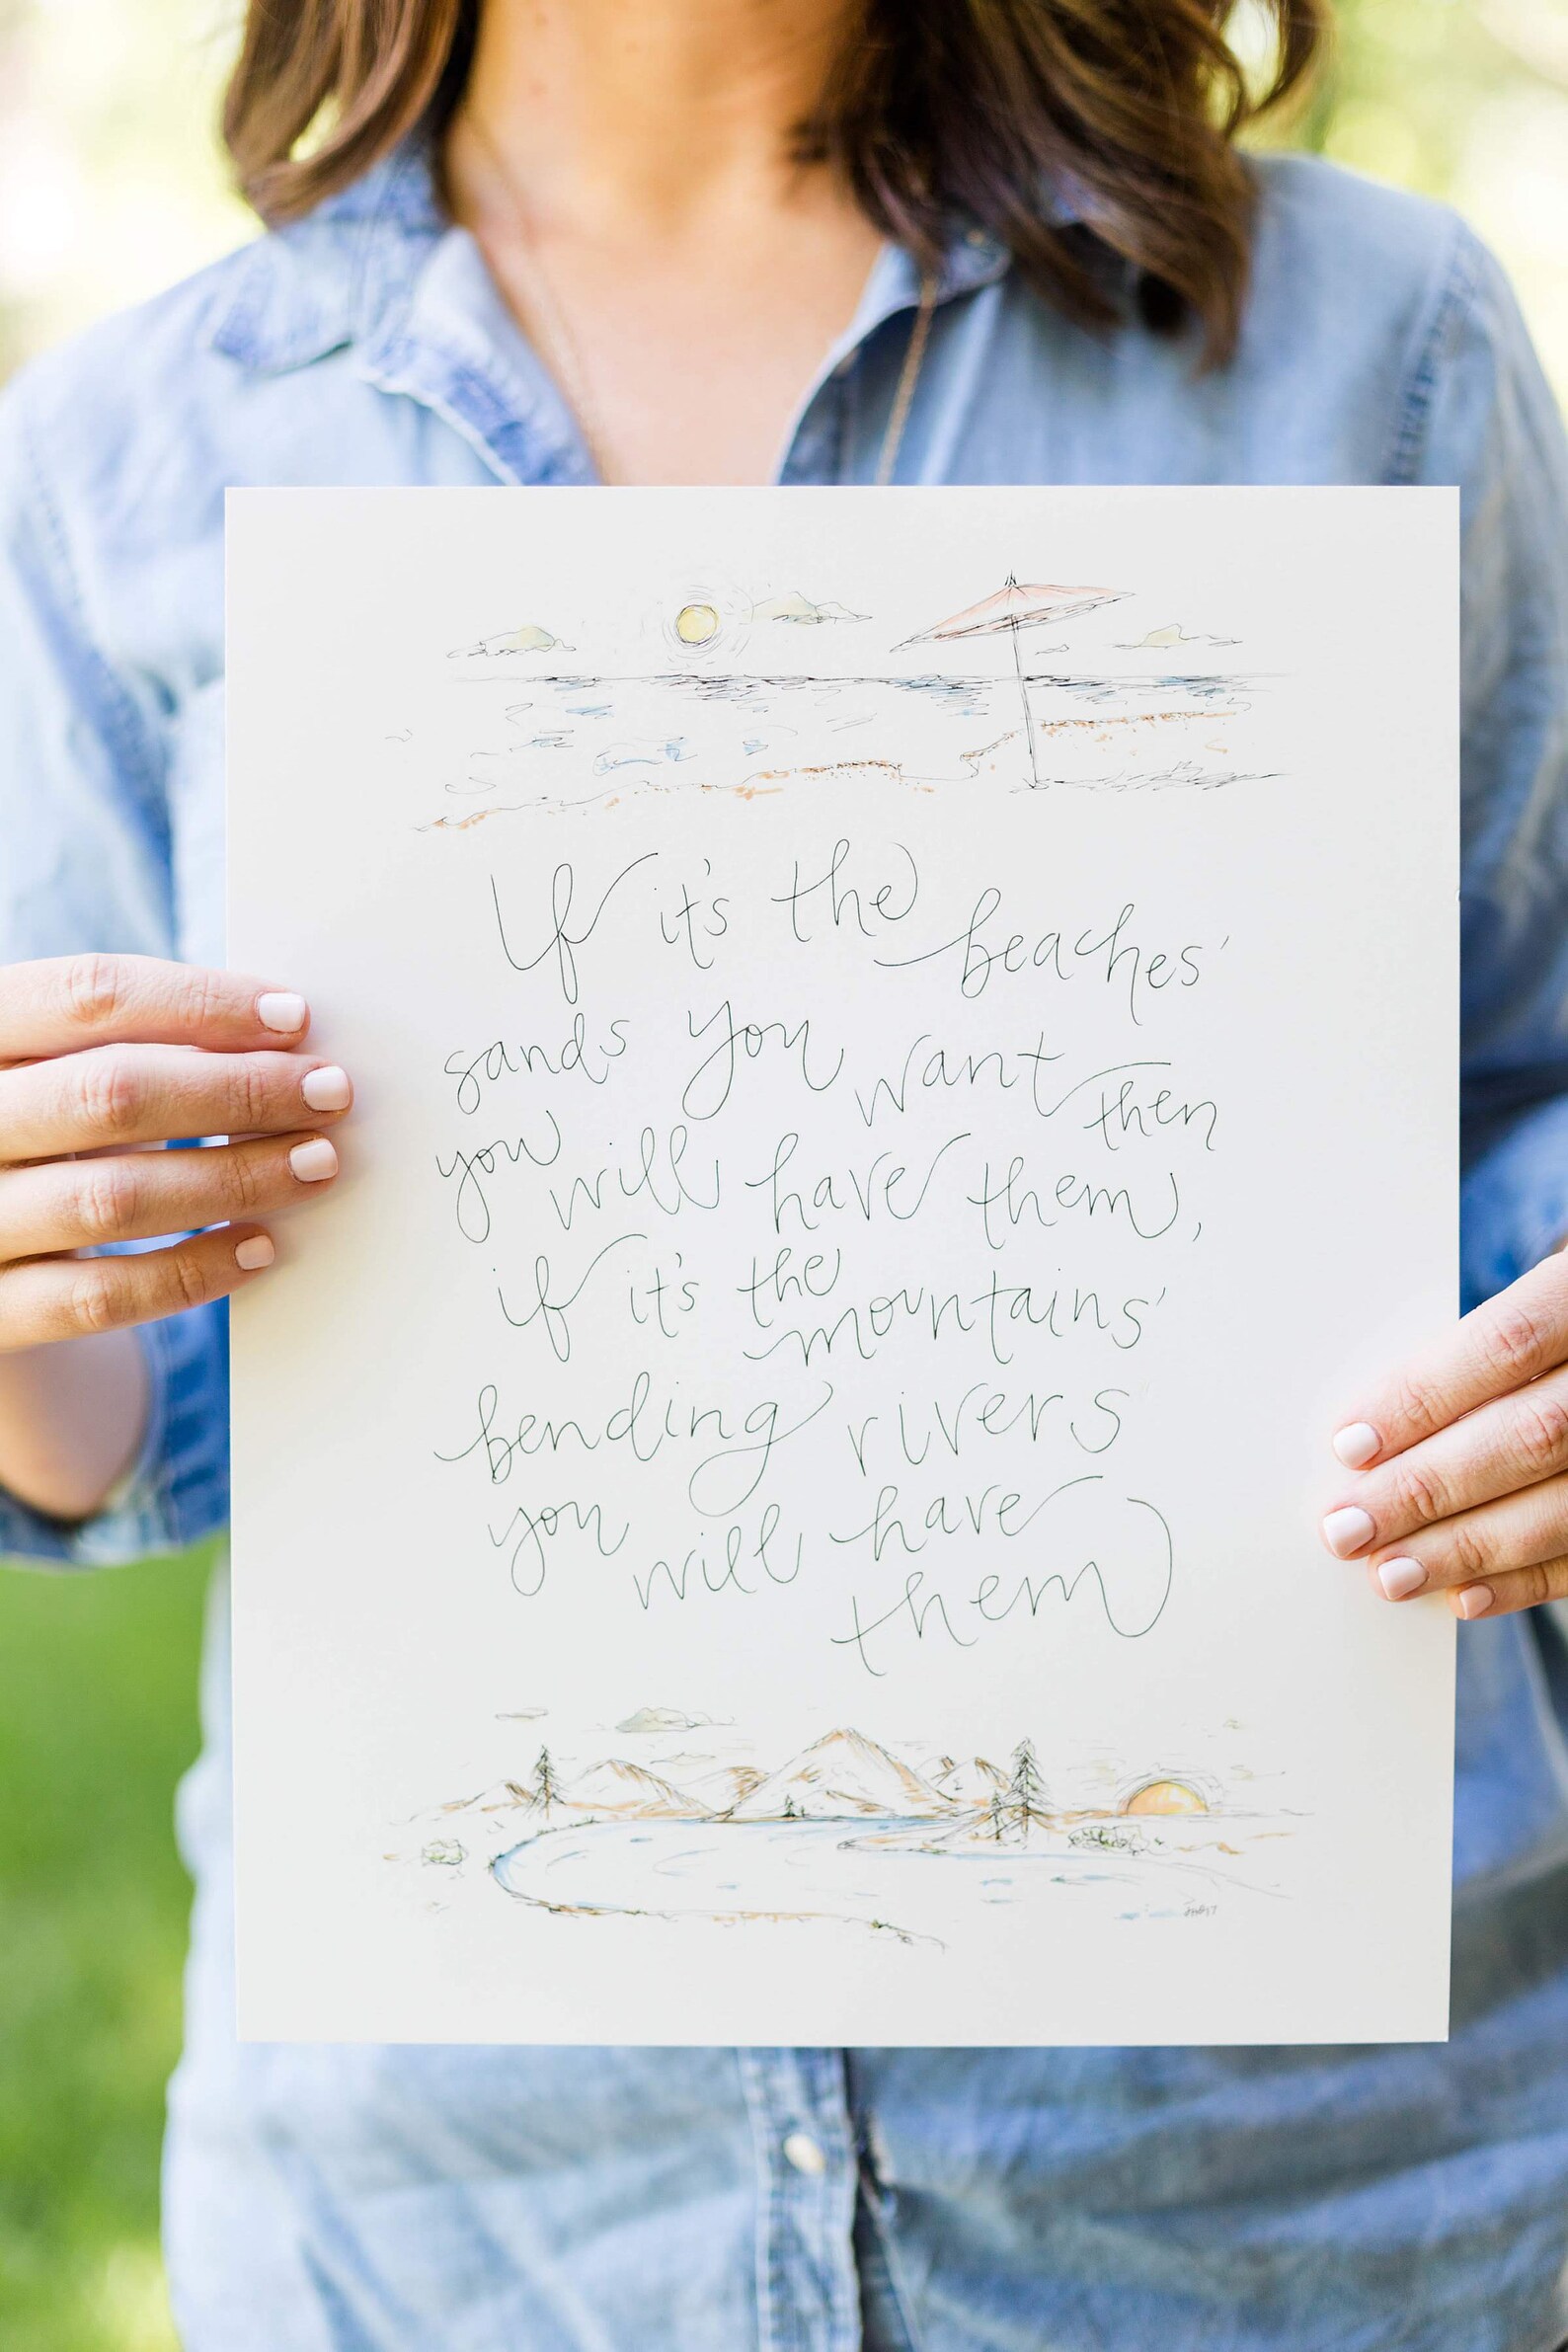 If it's the beaches'
sands you want then
you will have them,
if it's the mountains'
bending rivers
you will have
them